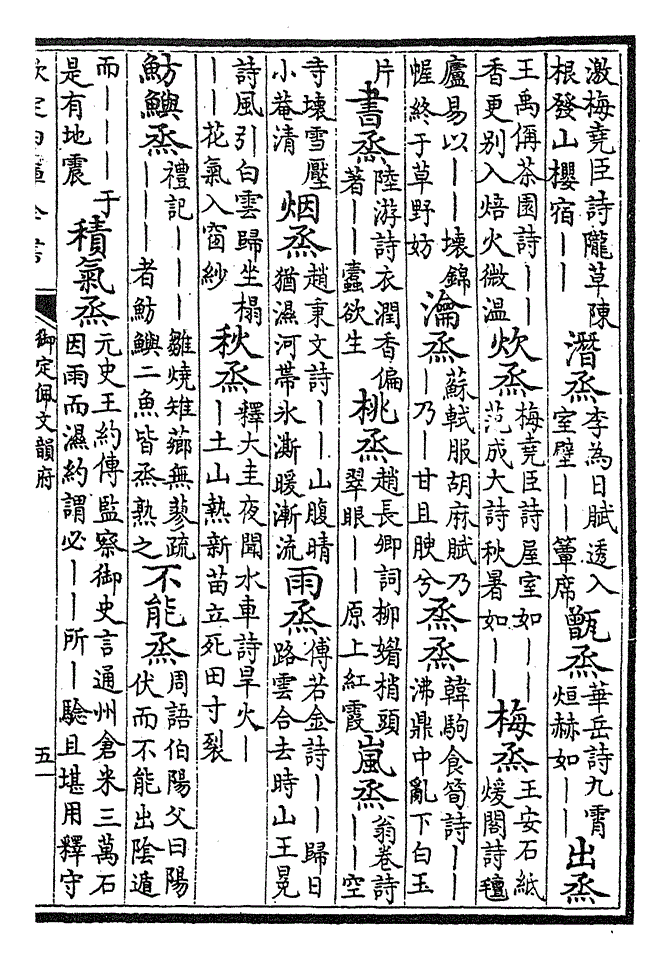 激梅堯臣詩隴草陳
根發山櫻宿｜｜
潛烝
李為日賦透入
室壁｜｜簟席
甑烝
華岳詩九霄
烜赫如｜｜
出烝
王禹偁茶園詩｜｜
香更别入焙火微温
炊烝
梅堯臣詩屋室如｜｜
范成大詩秋暑如｜｜
梅烝
王安石紙
煖閣詩氊
廬易以｜｜壞錦
幄終于草野妨
瀹烝
蘇軾服胡麻賦乃
｜乃｜甘且腴兮
烝烝
韓駒食筍詩｜｜
沸鼎中亂下白玉
片
書烝
陸游詩衣潤香偏
著｜｜蠹欲生
桃烝
趙長卿詞柳梢頭
翠眼｜｜原上紅霞
嵐烝
翁卷詩
｜｜空
寺壞雪壓
小菴清
烟烝
趙秉文詩｜｜山腹晴
猶濕河帶氷澌暖漸流
雨烝
傅若金詩｜｜歸日
路雲合去時山王冕
詩風引白雲歸坐榻
｜｜花氣入窗紗
秋烝
釋大圭夜聞水車詩旱火｜
｜土山熱新苗立死田寸裂
魴鱮烝
禮記｜｜｜雛燒雉薌無蓼疏
｜｜｜者魴鱮二魚皆烝熟之
不能烝
周語伯陽父曰陽
伏而不能出陰遁
而｜｜｜于
是有地震
積氣烝
元史王約傳監察御史言通州倉米三萬石
因雨而濕約謂必｜｜所｜驗且堪用釋守
欽定四庫全書
御定佩文韻府
五一